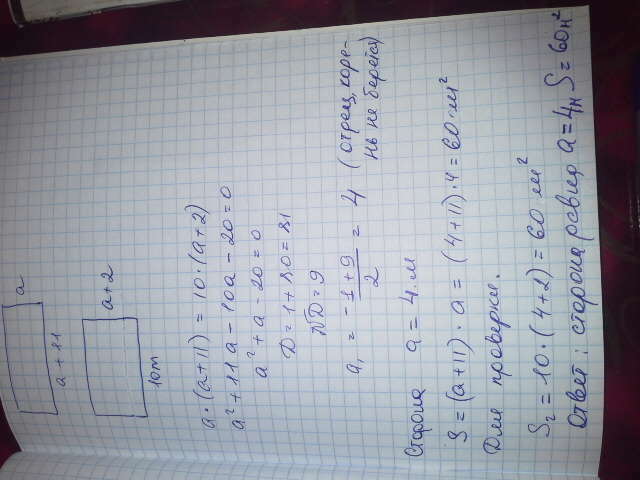 a
a + 11
a + 2
10m
a·(a+11) = 10·(a+2)
a² + 11a - 10a - 20 = 0
a² + a - 20 = 0
D = 1 + 80 = 81
√D = 9
a₁ = -1+9/2 = 4 (отриц. коре-
нь не берется)
Сторона a = 4 м
S = (a+11)·a = (4+11)·4 = 60 м²
Для проверки.
S₂ = 10·(4+2) = 60 м²
Ответ: сторона равна a = 4м S = 60м²